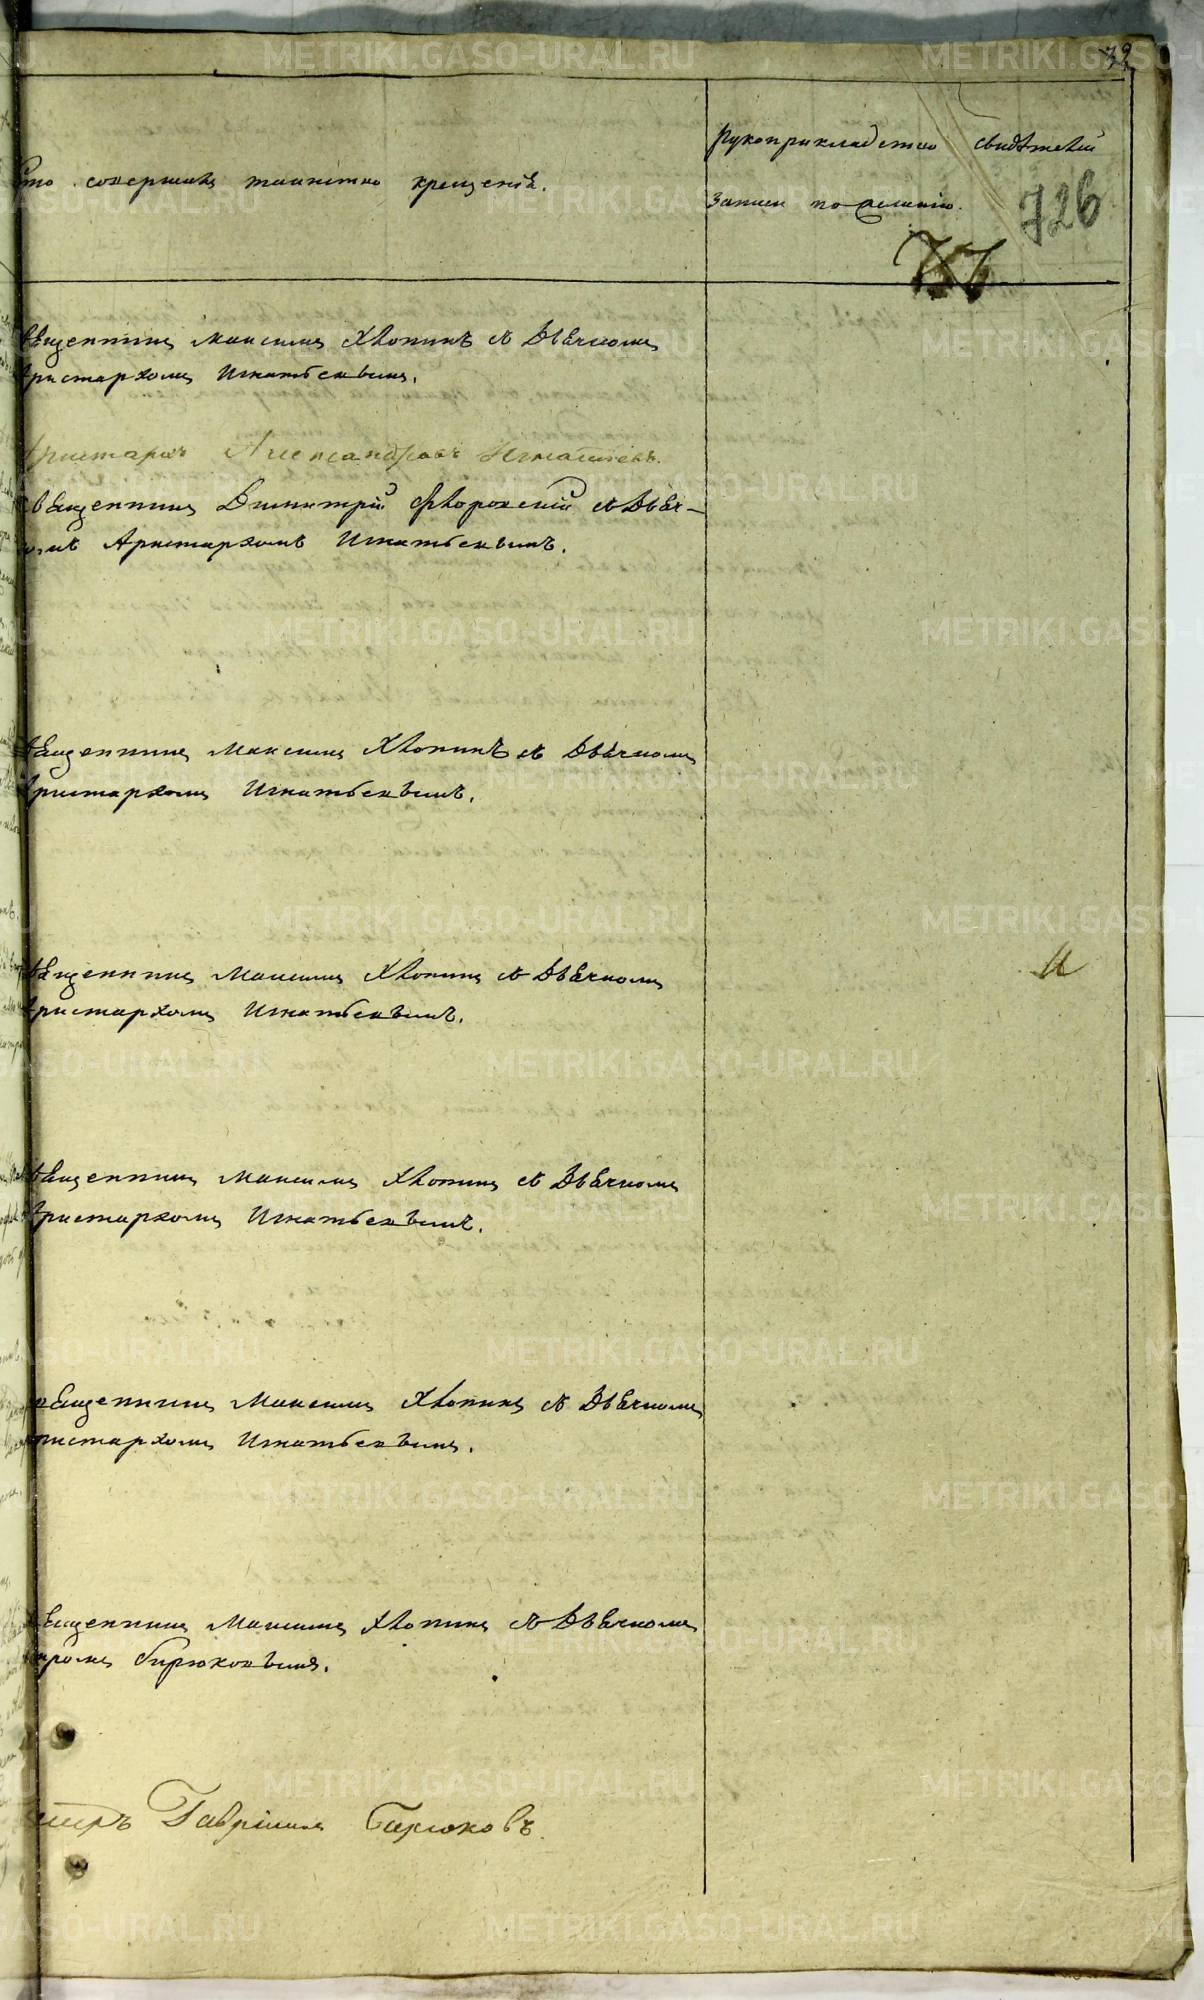 Кто совершалъ таинство крещенія.
Рукоприкладство свидѣтелей
записи по желанію.
726
Священникъ Максимъ Хлопинъ съ Дьячкомъ
Аристархомъ Игнатьевымъ.
Аристархъ Александровъ Игнатьевъ.
Священникъ Димитрій Флоровскій съ Дьяч-
комъ Аристархомъ Игнатьевымъ.
Священникъ Максимъ Хлопинъ съ Дьячкомъ
Аристархомъ Игнатьевымъ.
Священникъ Максимъ Хлопинъ съ Дьячкомъ
Аристархомъ Игнатьевымъ.
Священникъ Максимъ Хлопинъ съ Дьячкомъ
Аристархомъ Игнатьевымъ.
Священникъ Максимъ Хлопинъ съ Дьячкомъ
Аристархомъ Игнатьевымъ.
Священникъ Максимъ Хлопинъ съ Дьячкомъ
Бирюковымъ.
Гавріилъ Бирюковъ.
METRIKI.GASO-URAL.RU